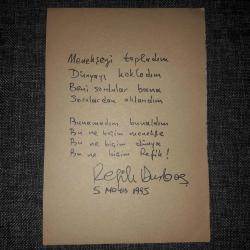 Menekşeyi topladım
Dünyayı kokladım
Beni sordular bana
Sorulardan aklandım
Bunamadım bunaldım
Bu ne biçim menekşe
Bu ne biçim dünya
Bu ne biçim Refik!
Refik Durbaş
5 MAYIS 1995